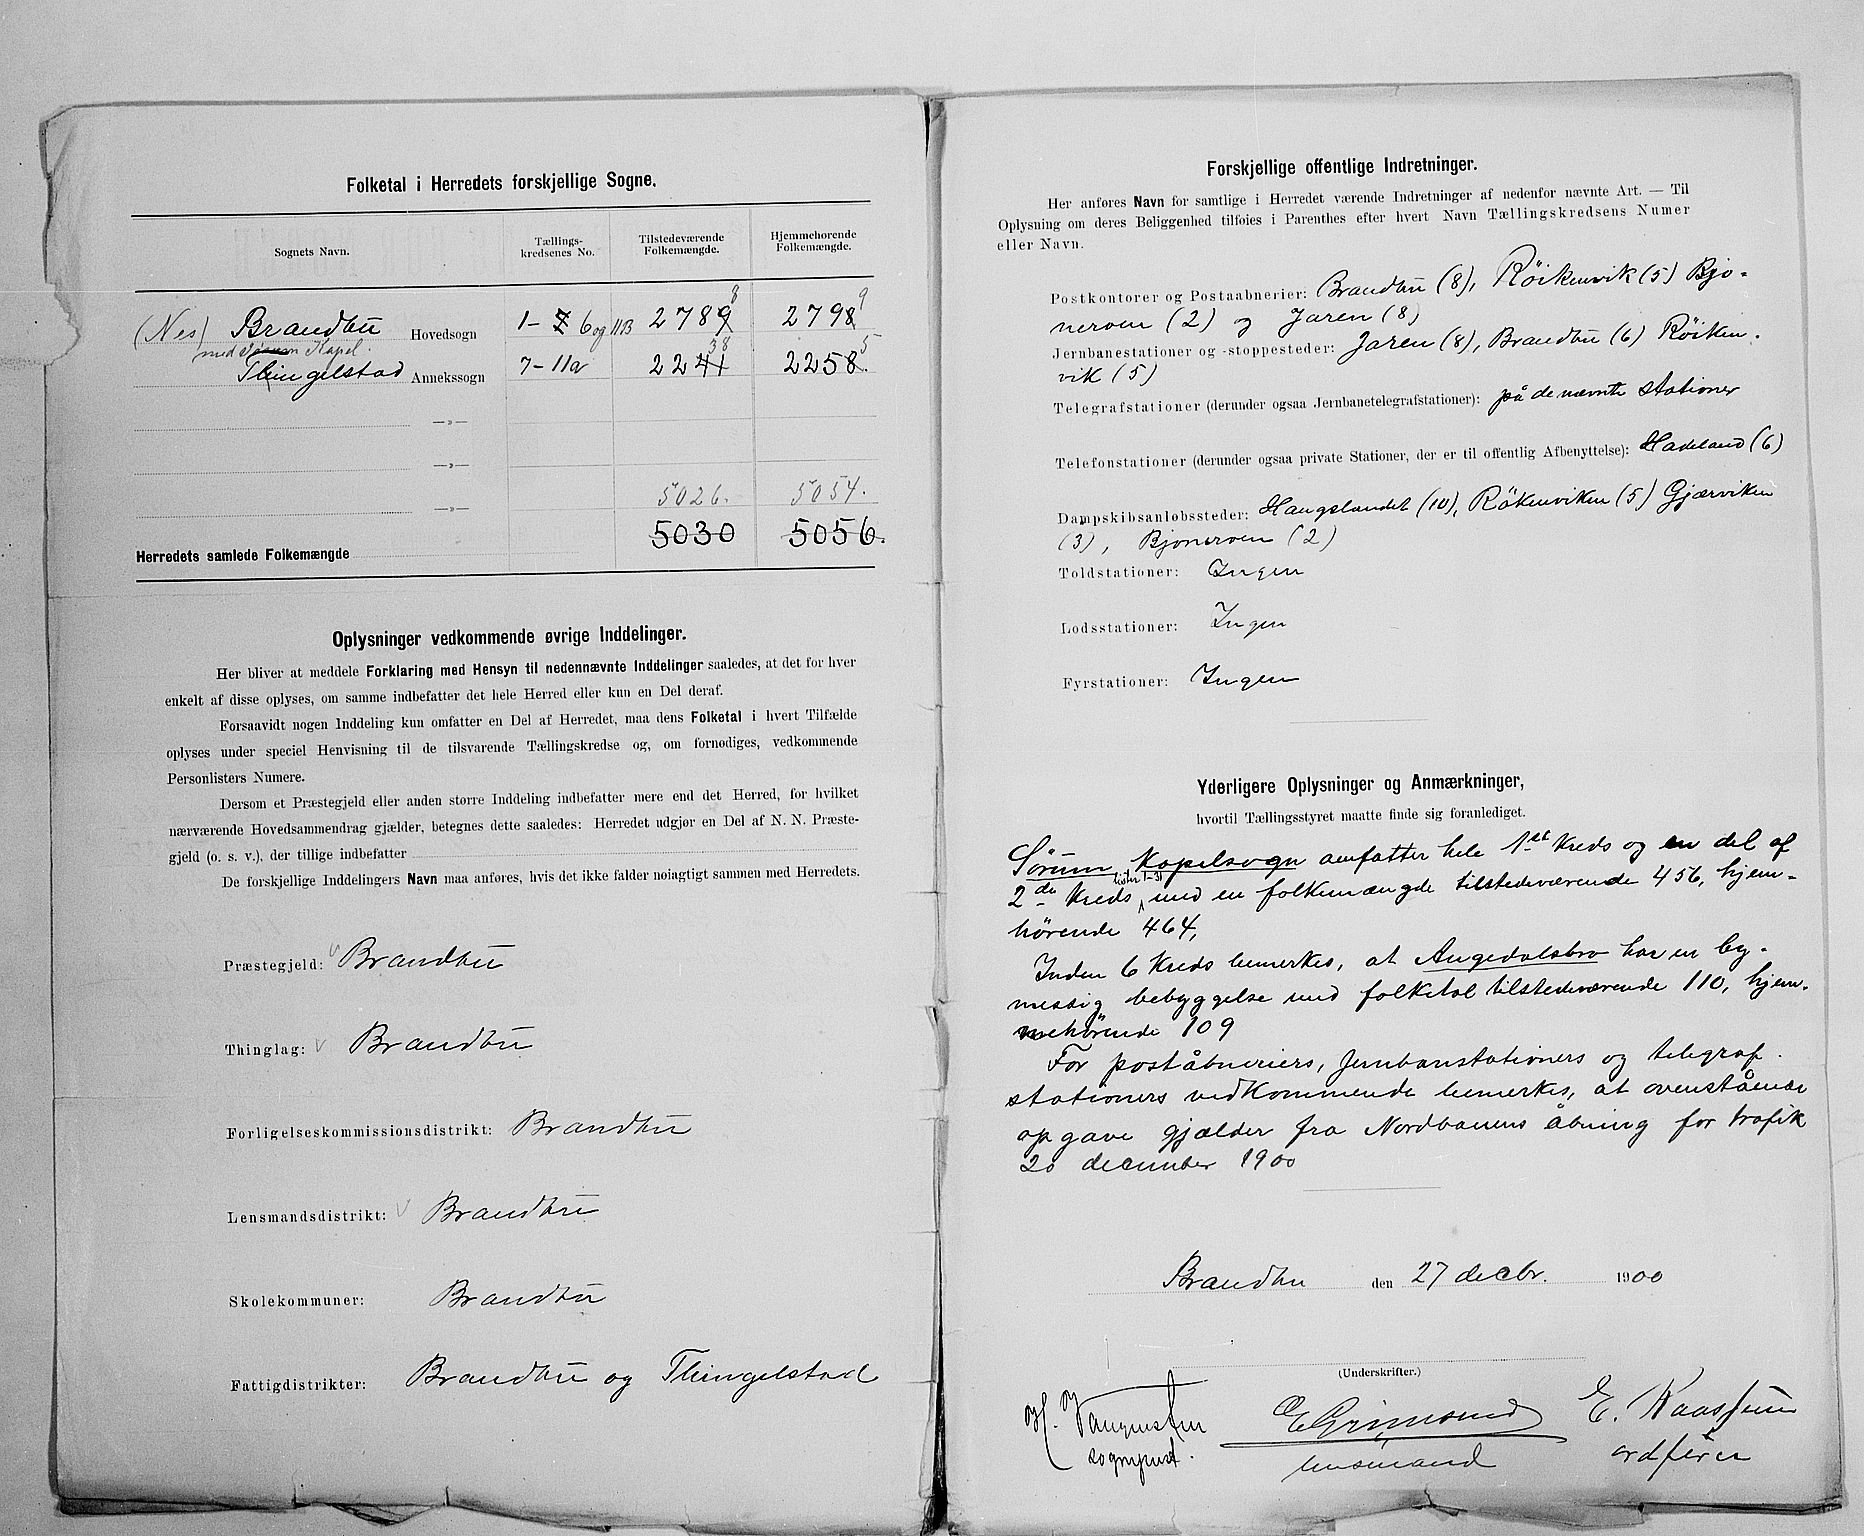 Folketal i Herredets forskjellige Sogne.
Sognets Navn.
Tællings-
kredsenes No.
Tilstedeværende
Folkemængde.
Hjemmehørende
Folkemængde.
(Nes) Brandbu Hovedsogn 1-7 6 og 11B 2789 8 2798 9
med Sørum Kapel.
Thingelstad Annekssogn 7-11a 2241 38 2258. 5
—»—
—»—
—»— 5026. 5054.
Herredets samlede Folkemængde 5030 5056.
Oplysninger vedkommende øvrige Inddelinger.
Her bliver at meddele Forklaring med Hensyn til nedennævnte Inddelinger saaledes, at det for hver
enkelt af disse oplyses, om samme indbefatter det hele Herred eller kun en Del deraf.
Forsaavidt nogen Inddeling kun omfatter en Del af Herredet, maa dens Folketal i hvert Tilfælde
oplyses under speciel Henvisning til de tilsvarende Tællingskredse og, om fornødiges, vedkommende
Personlisters Numere.
Dersom et Præstegjeld eller anden større Inddeling indbefatter mere end det Herred, for hvilket
nærværende Hovedsammendrag gjælder, betegnes dette saaledes: Herredet udgjør en Del af N. N. Præste-
gjeld (o. s. v.), der tillige indbefatter
De forskjellige Inddelingers Navn maa anføres, hvis det ikke falder nøiagtigt sammen med Herredets.
Præstegjeld: v Brandbu
Thinglag: v Brandbu
Forligelseskommissionsdistrikt: Brandbu
Lensmandsdistrikt: v Brandbu
Skolekommuner: Brandbu
Fattigdistrikter: Brandbu og Thingelstad
Forskjellige offentlige Indretninger.
Her anføres Navn for samtlige i Herredet værende Indretninger af nedenfor nævnte Art. — Til
Oplysning om deres Beliggenhed tilføies i Parenthes efter hvert Navn Tællingskredsens Numer
eller Navn.
Postkontorer og Postaabnerier: Brandbu (8), Røikenvik (5) Bjo-
neroen (2) og Jaren (8)
Jernbanestationer og -stoppesteder: Jaren (8), Brandbu (6) Røiken.
vik (5)
Telegrafstationer (derunder ogsaa Jernbanetelegrafstationer): på de nævnte stationer
Telefonstationer (derunder ogsaa private Stationer, der er til offentlig Afbenyttelse): Hadeland (6)
Dampskibsanløbssteder: Haugslandet (10), Røkenviken (5) Gjærviken
(3), Bjoneroen (2)
Toldstationer: Ingen
Lodsstationer: Ingen
Fyrstationer: Ingen
Yderligere Oplysninger og Anmærkninger,
hvortil Tællingsstyret maatte finde sig foranlediget.
Sørum Kapelsogn omfatter hele 1ste Kreds og en del af
2de Kreds, lister 1-31 med en folkemængde tilstedeværende 456, hjem-
hørende 464,
Inden 6 Kreds bemerkes, at Augedalsbro har en by-
messig bebyggelse med folketal tilstedeværende 110, hjem-
mehørende 109
For poståbneriers, Jernbanstationers og telegraf.
stationers vedkommende bemerkes, at ovenstående
opgave gjælder fra Nordbanens åbning for trafik
20 december 1900
Brandbu den 27 decbr. 1900
(Underskrifter.)
sogneprest.
E Grimsrud
lensmand
ordfører